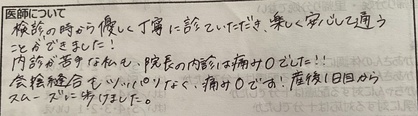 医師について
検診の時から優しく丁寧に診ていただき、楽しく安心して通う
ことができました！
内診が苦手な私も、院長の内診は痛み0でした!!
会陰縫合もツッパリなく、痛み0です！産後1日目から
スムーズに歩けました。